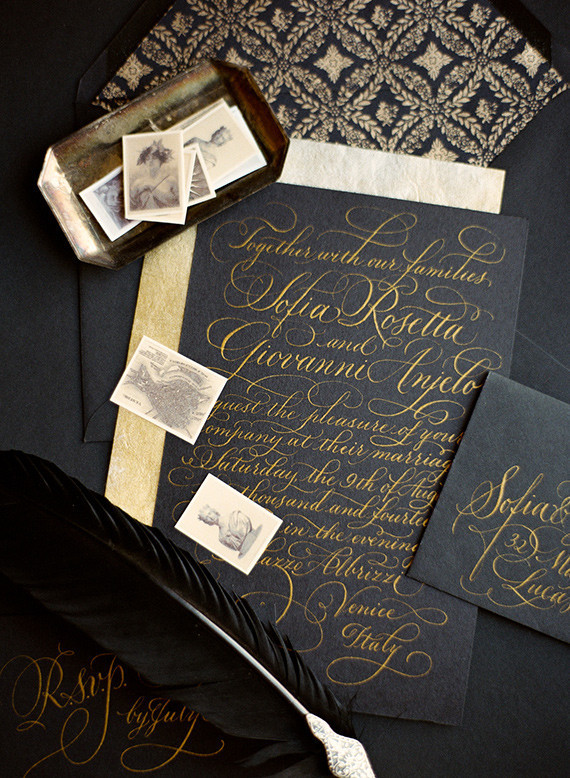 Together with our families,
Sofia Rosetta
and
Giovanni Anjelo
quest the pleasure of your
ompany at their marriag
Saturday the 9th of Aug
thousand and fourte
in the evening
lazzo Albrizzi
Venice
Italy
Sofia &
32
Lucas
R.s.v.p.
by July